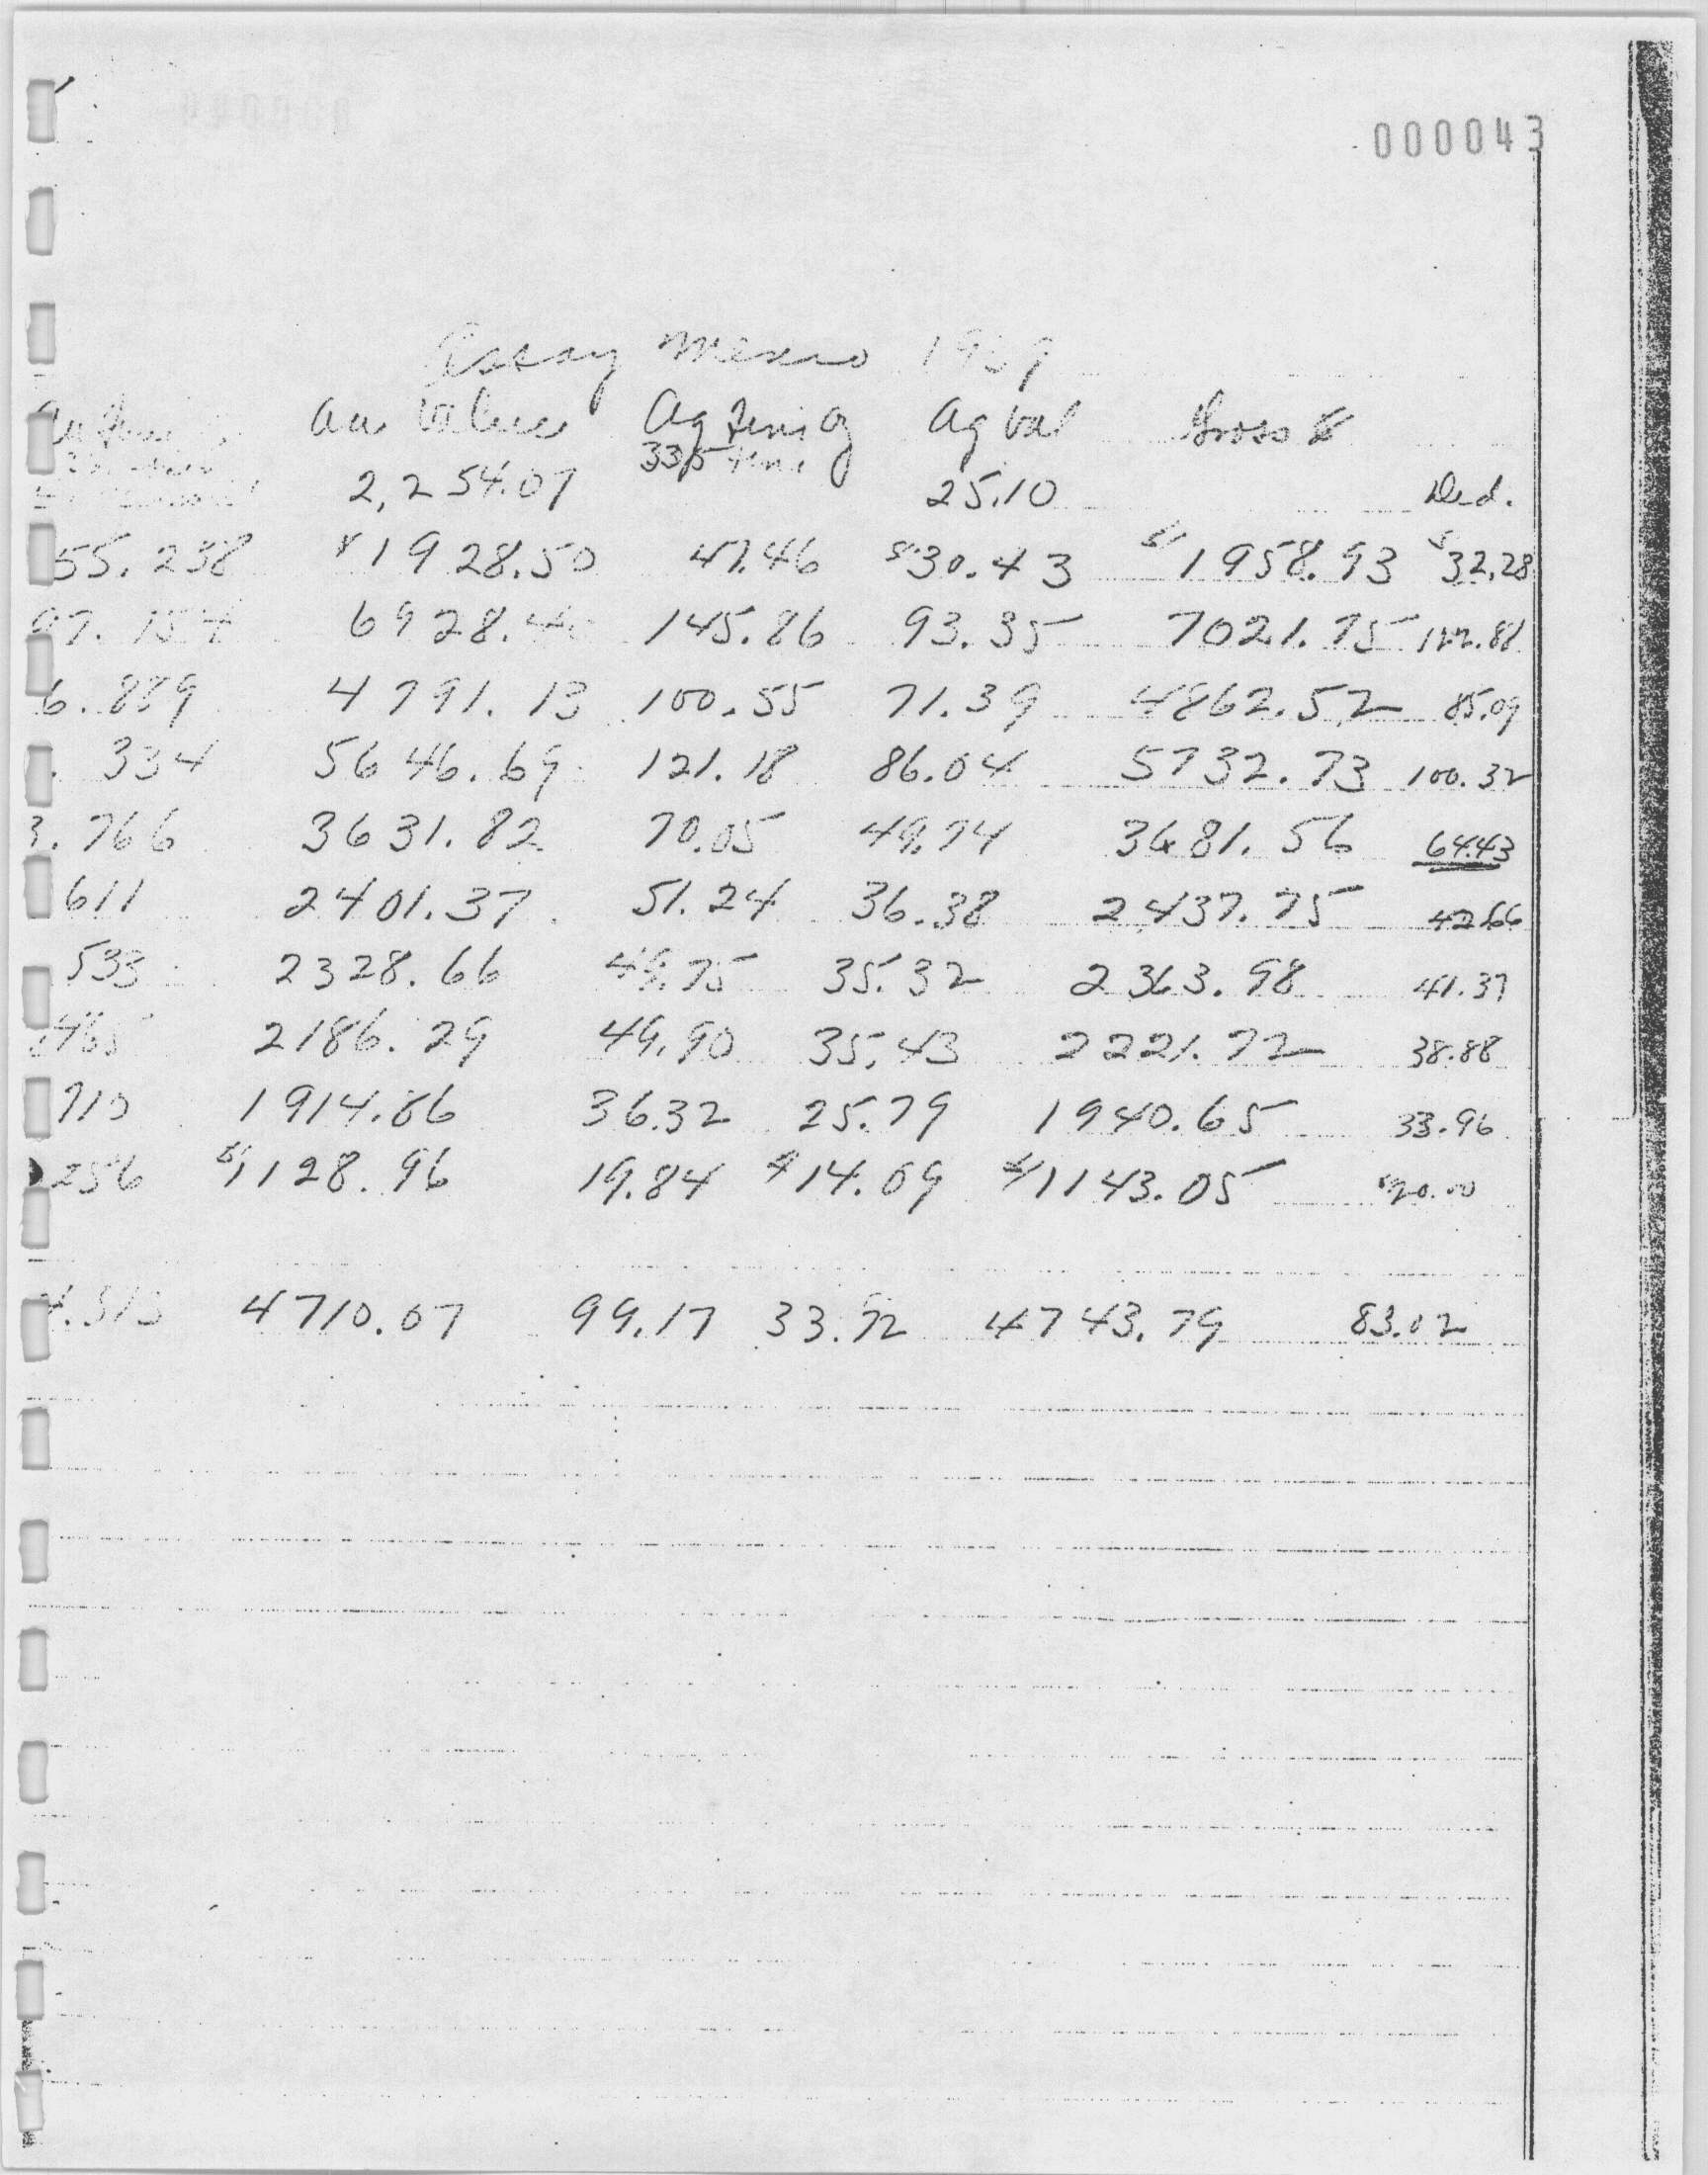 000043
Assay Mexico 1969
Au Value Ag Fine Oz Ag Val Gross $
335 fine
2,254.07 25.10 Ded.
55.238 $1928.50 47.46 $30.43 $1958.93 $32.28
97.154 6928.40 145.86 93.35 7021.75 122.81
6.889 4791.13 100.55 71.39 4862.52 85.09
.334 5646.69 121.18 86.04 5732.73 100.32
3.766 3631.82 70.05 49.74 3681.56 64.43
611 2401.37 51.24 36.38 2437.75 42.66
533 2328.66 49.75 35.32 2363.98 41.37
2186.29 49.90 35.43 2221.72 38.88
710 1914.86 36.32 25.79 1940.65 33.96
256 $1128.96 19.84 $14.09 $1143.05 $20.00
4710.07 99.17 33.72 4743.79 83.02